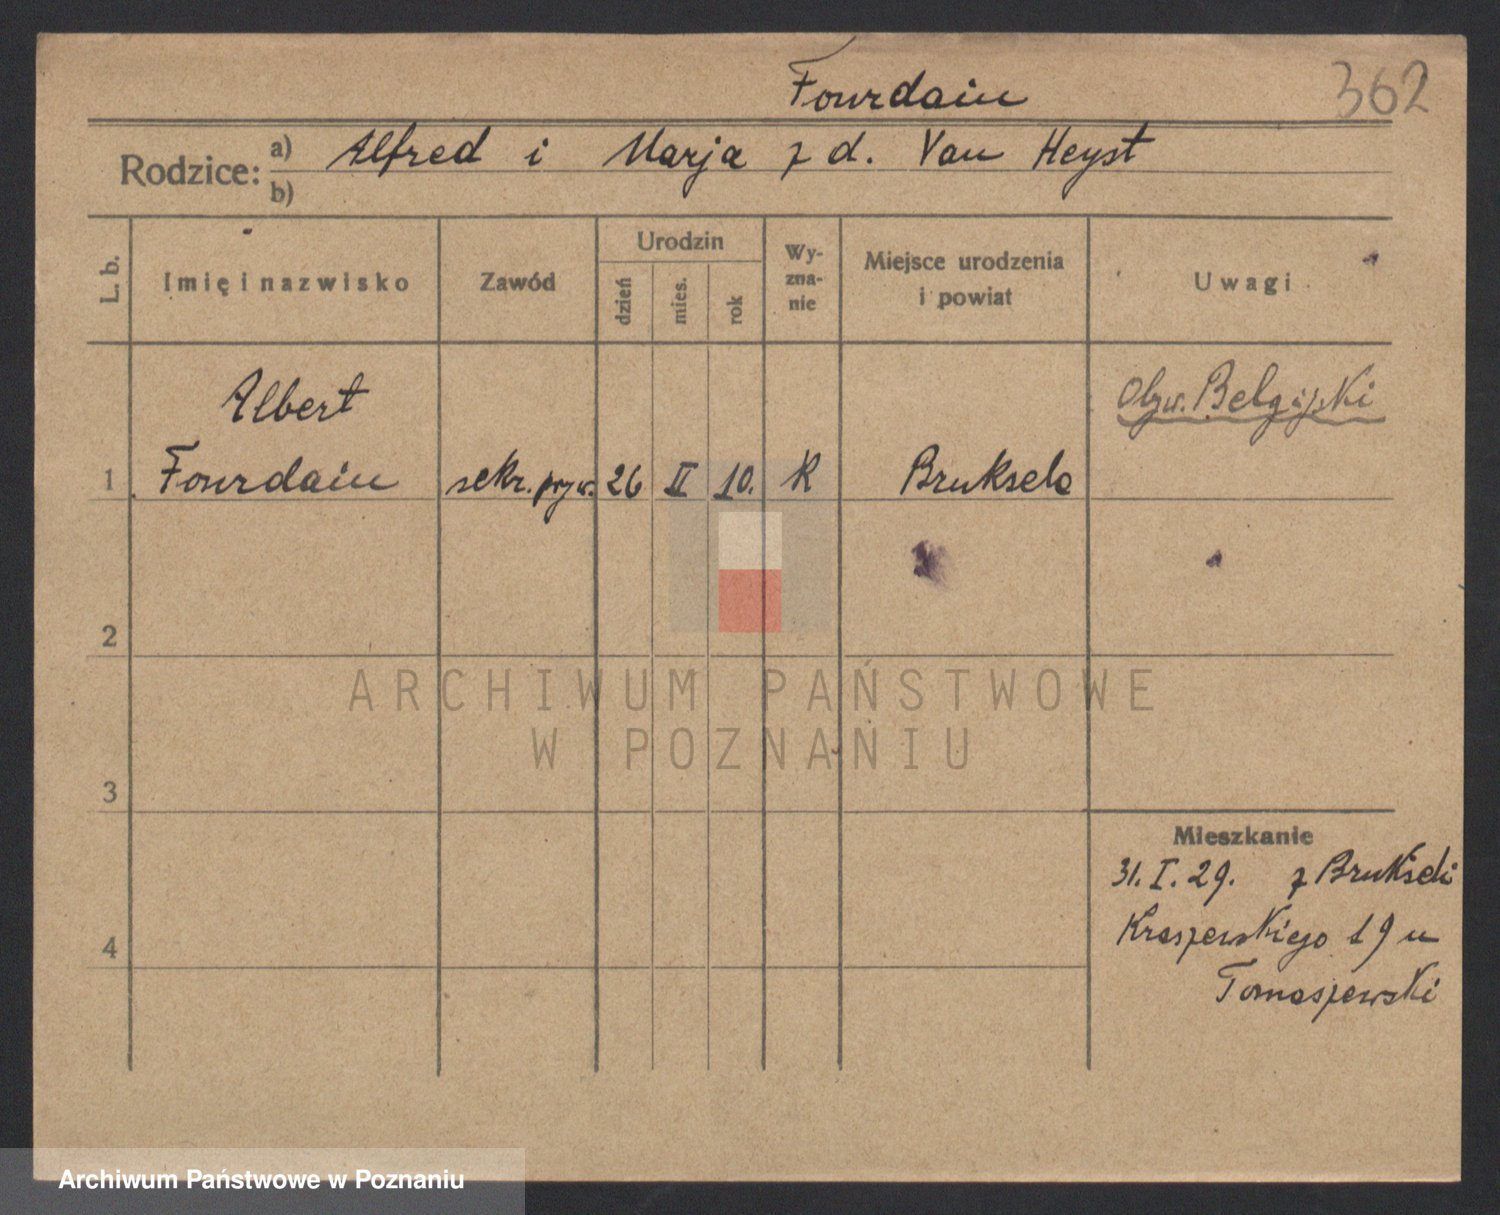 Fourdain
362
Rodzice: a) Alfred i Marja z d. Van Heyst
b)
L. b.
Imię i nazwisko
Zawód
Urodzin
dzień
mies.
rok
Wy-
zna-
nie
Miejsce urodzenia
i powiat
Uwagi
Albert
Obyw. Belgijski
1 Fourdain sekr. pryw. 26 II 10. K Bruksela
2
ARCHIWUM PAŃSTWOWE
W POZNANIU
3
Mieszkanie
31. I. 29. z Brukseli
Kraszewskiego 19 u
4
Tomaszewski
Archiwum Państwowe w Poznaniu